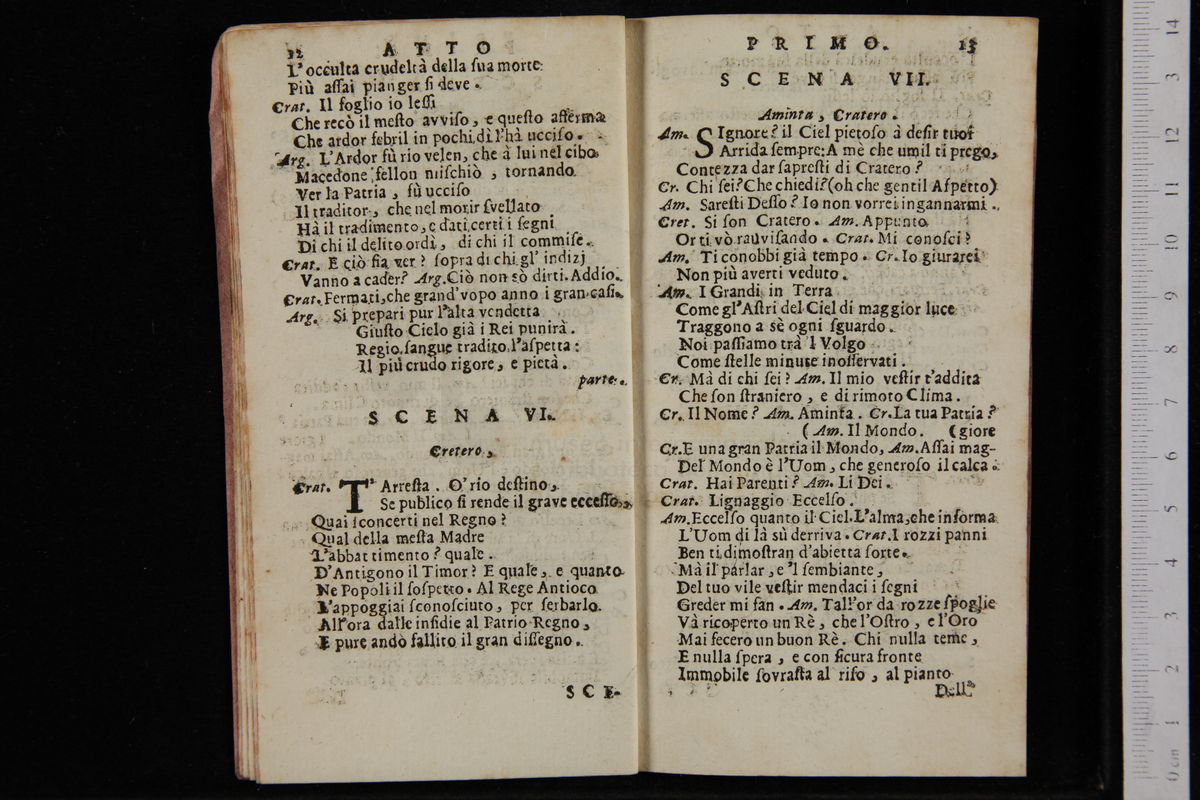 12 ATTO
L'occulta crudeltà della ſua morte
Più aſſai pianger ſi deve.
Crat. Il foglio io leſſi
Che recò il meſto avviſo, e queſto afferma
Che ardor febril in pochi dì l'hà ucciſo.
Arg. L'Ardor fù rio velen, che à lui nel cibo
Macedone fellon miſchiò, tornando
Ver la Patria, fù ucciſo
Il traditor, che nel morir ſvellato
Hà il tradimento, e dati certi i ſegni
Di chi il delito ordà, di chi il commiſe.
Crat. E ciò fia ver? ſopra di chi gl' indizj
Vanno a cader? Arg. Ciò non sò dirti. Addio.
Crat. Fermati, che grand'vopo anno i gran caſi.
Arg. Si prepari pur l'alta vendetta
Giuſto Cielo già i Rei punirà.
Regio ſangue tradito l'aſpetta:
Il più crudo rigore, e pietà.
parte.
SCENA VI.
Cretero.
Crat. T'Arreſta. O' rio deſtino,
Se publico ſi rende il grave ecceſſo,
Quai ſconcerti nel Regno?
Qual della meſta Madre
L'abbattimento? quale.
D'Antigono il Timor? E quale, e quanto
Ne Popoli il ſoſpetto. Al Rege Antioco
L'appoggiai ſconoſciuto, per ſerbarlo
All'ora dalle inſidie al Patrio Regno,
E pure andò fallito il gran diſſegno.
SCE-
PRIMO. 13
SCENA VII.
Aminta, Cratero.
Am. SIgnore? il Ciel pietoſo à deſir tuoi
Arrida ſempre: A mè che umil ti prego,
Contezza dar ſapreſti di Cratero?
Cr. Chi ſei? Che chiedi? (oh che gentil Aſpetto)
Am. Sareſti Deſſo? Io non vorrei ingannarmi.
Cret. Si ſon Cratero. Am. Appunto
Or ti vò ravviſando. Crat. Mi conoſci?
Am. Ti conobbi già tempo. Cr. Io giurarei
Non più averti veduto.
Am. I Grandi in Terra
Come gl'Aſtri del Ciel di maggior luce
Traggono a sè ogni ſguardo.
Noi paſſiamo trà 'l Volgo
Come ſtelle minute inoſſervati.
Cr. Mà di chi ſei? Am. Il mio veſtir t'addita
Che ſon ſtraniero, e di rimoto Clima.
Cr. Il Nome? Am. Aminta. Cr. La tua Patria?
(Am. Il Mondo. (giore
Cr. E una gran Patria il Mondo, Am. Aſſai mag-
Del Mondo è l'Uom, che generoſo il calca.
Crat. Hai Parenti? Am. Li Dei.
Crat. Lignaggio Eccelſo.
Am. Eccelſo quanto il Ciel. L'alma, che informa
L'Uom di là sù derriva. Crat. I rozzi panni
Ben ti dimoſtran d'abietta ſorte.
Mà il parlar, e 'l ſembiante,
Del tuo vile veſtir mendaci i ſegni
Greder mi fan. Am. Tall'or da rozze ſpoglie
Và ricoperto un Rè, che l'Oſtro, e l'Oro
Mai fecero un buon Rè. Chi nulla teme,
E nulla ſpera, e con ſicura fronte
Immobile ſovraſta al riſo, al pianto
Dell'